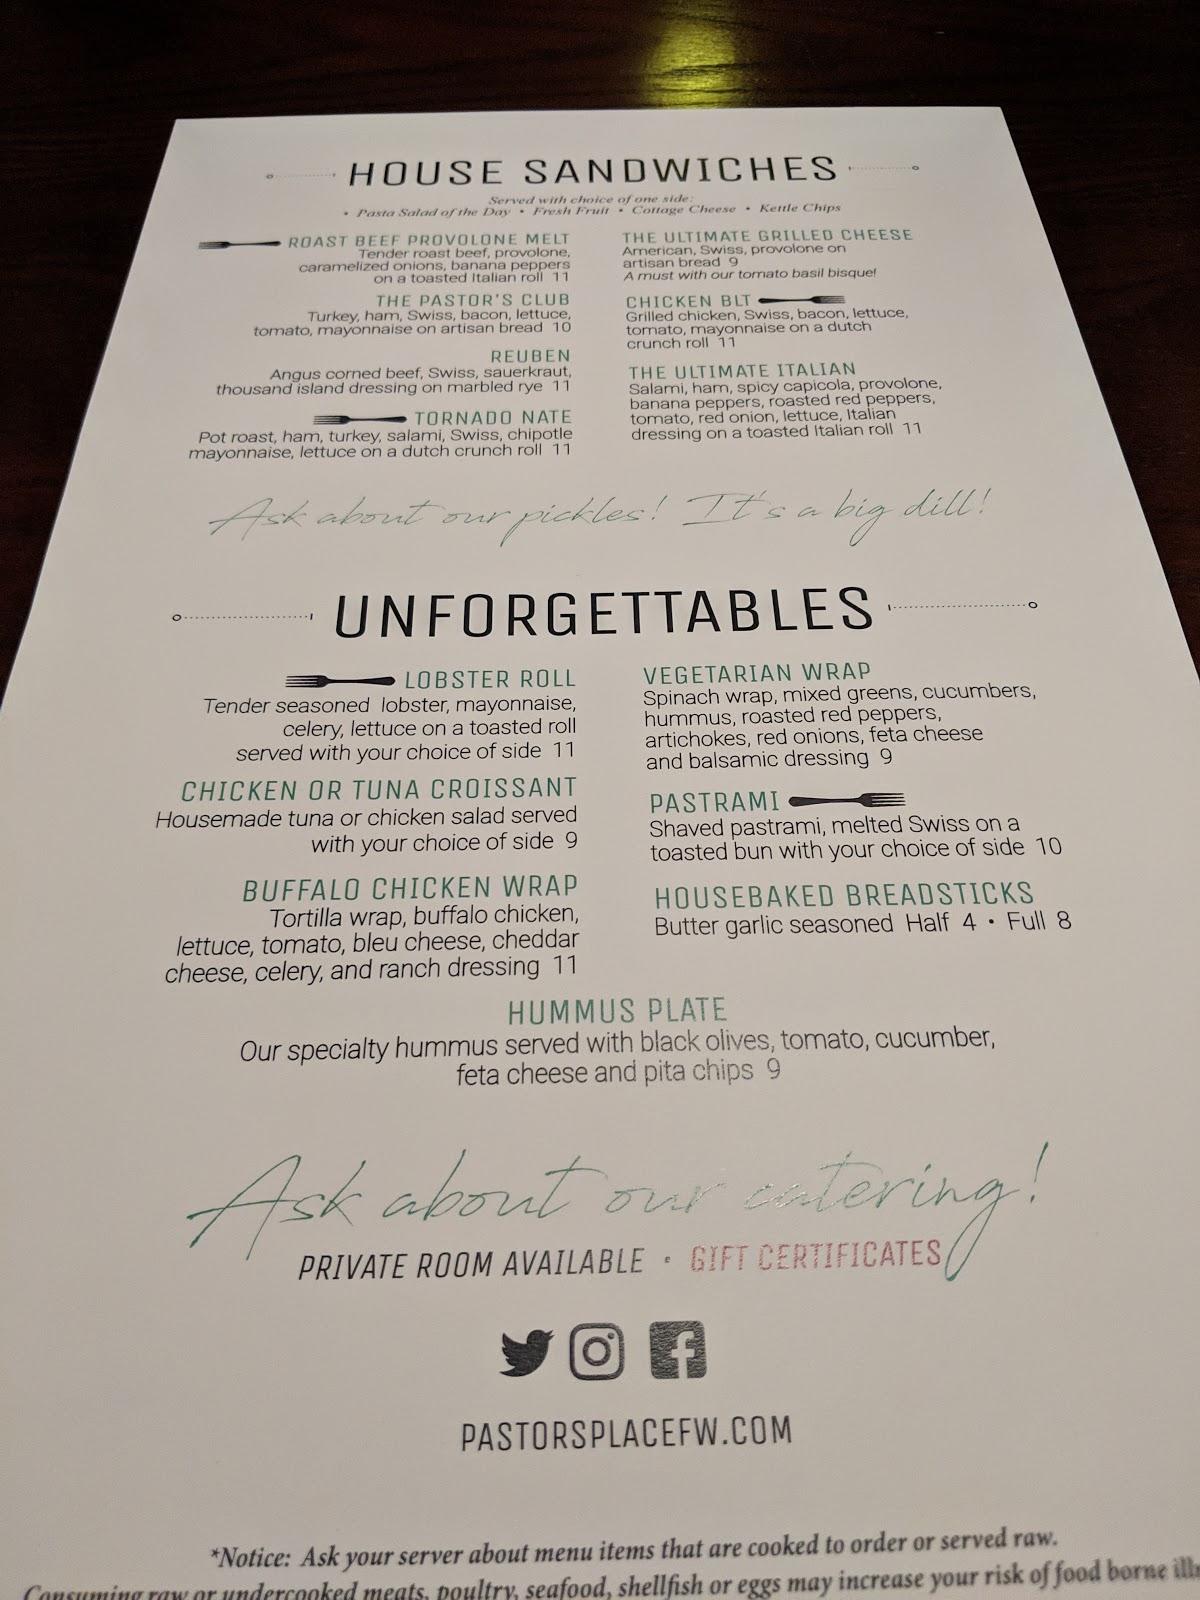 HOUSE SANDWICHES
Served with choice of one side:
• Pasta Salad of the Day • Fresh Fruit • Cottage Cheese • Kettle Chips
ROAST BEEF PROVOLONE MELT
Tender roast beef, provolone,
caramelized onions, banana peppers
on a toasted Italian roll 11
THE PASTOR'S CLUB
Turkey, ham, Swiss, bacon, lettuce,
tomato, mayonnaise on artisan bread 10
REUBEN
Angus corned beef, Swiss, sauerkraut,
thousand island dressing on marbled rye 11
TORNADO NATE
Pot roast, ham, turkey, salami, Swiss, chipotle
mayonnaise, lettuce on a dutch crunch roll 11
THE ULTIMATE GRILLED CHEESE
American, Swiss, provolone on
artisan bread 9
A must with our tomato basil bisque!
CHICKEN BLT
Grilled chicken, Swiss, bacon, lettuce,
tomato, mayonnaise on a dutch
crunch roll 11
THE ULTIMATE ITALIAN
Salami, ham, spicy capicola, provolone,
banana peppers, roasted red peppers,
tomato, red onion, lettuce, Italian
dressing on a toasted Italian roll 11
Ask about our pickles! It's a big dill!
UNFORGETTABLES
LOBSTER ROLL
Tender seasoned lobster, mayonnaise,
celery, lettuce on a toasted roll
served with your choice of side 11
CHICKEN OR TUNA CROISSANT
Housemade tuna or chicken salad served
with your choice of side 9
BUFFALO CHICKEN WRAP
Tortilla wrap, buffalo chicken,
lettuce, tomato, bleu cheese, cheddar
cheese, celery, and ranch dressing 11
VEGETARIAN WRAP
Spinach wrap, mixed greens, cucumbers,
hummus, roasted red peppers,
artichokes, red onions, feta cheese
and balsamic dressing 9
PASTRAMI
Shaved pastrami, melted Swiss on a
toasted bun with your choice of side 10
HOUSEBAKED BREADSTICKS
Butter garlic seasoned Half 4 • Full 8
HUMMUS PLATE
Our specialty hummus served with black olives, tomato, cucumber,
feta cheese and pita chips 9
Ask about our catering!
PRIVATE ROOM AVAILABLE • GIFT CERTIFICATES
PASTORSPLACEFW.COM
*Notice: Ask your server about menu items that are cooked to order or served raw.
Consuming raw or undercooked meats, poultry, seafood, shellfish or eggs may increase your risk of food borne